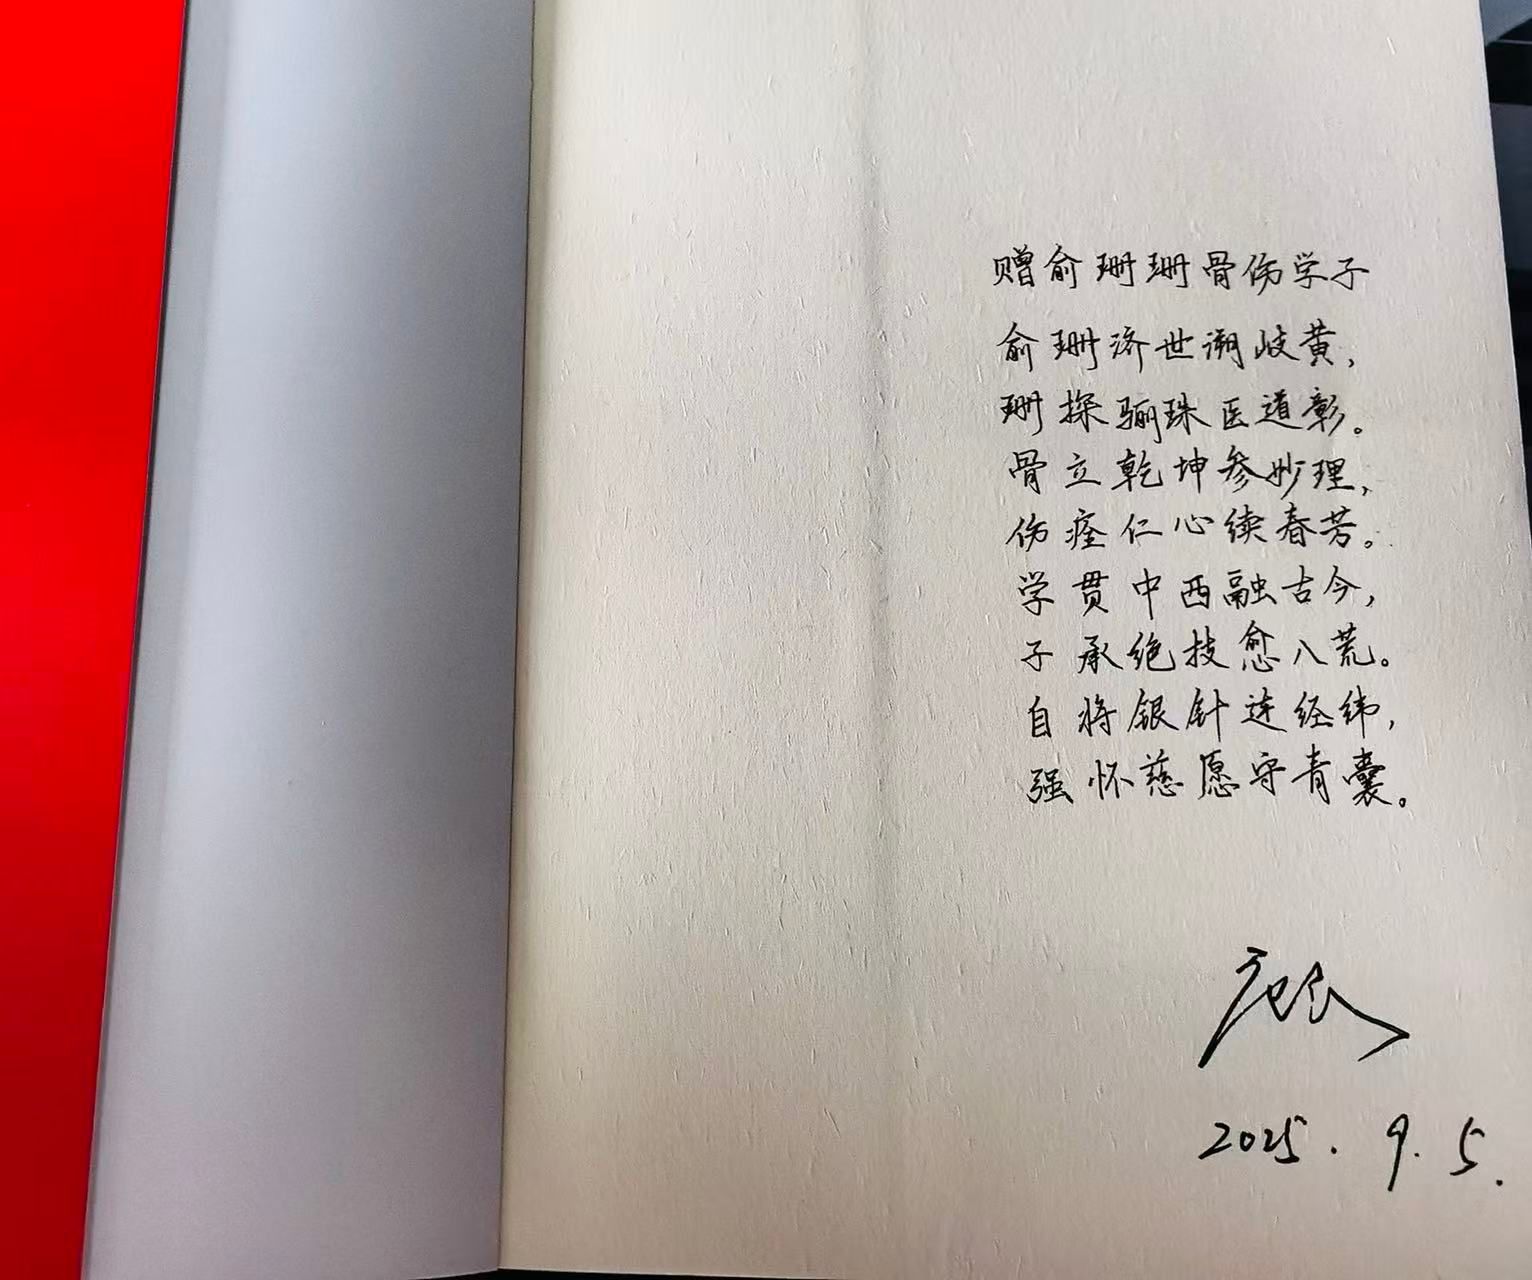 赠俞珊珊骨伤学子
俞珊济世溯岐黄,
珊探骊珠医道彰。
骨立乾坤参妙理,
伤痊仁心续春芳。
学贯中西融古今,
子承绝技愈八荒。
自将银针连经纬,
强怀慈愿守青囊。
2025.9.5.